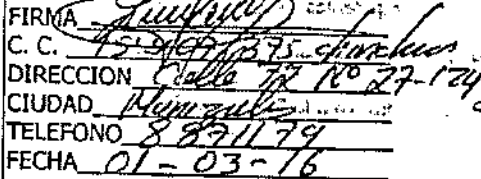 FIRMA
C. C.
DIRECCION Calle 72 Nº 27-124
CIUDAD Manizales
TELEFONO 8871179
FECHA 01-03-16